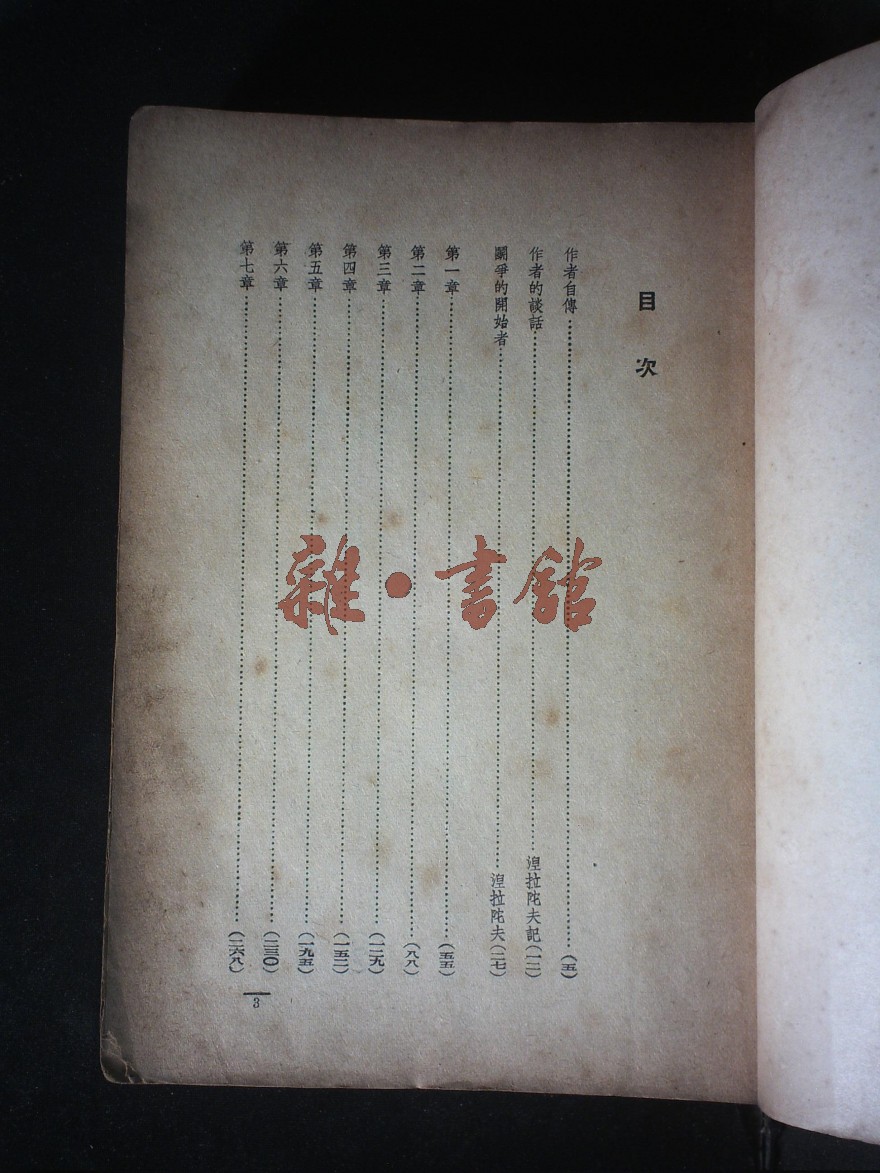 目次
作者自傳……(五)
作者的談話……湼拉陀夫記(一二)
鬭爭的開始者……湼拉陀夫(二七)
第一章……(五五)
第二章……(八八)
第三章……(一二九)
第四章……(一五二)
第五章……(一九五)
第六章……(二三〇)
第七章……(二六八)
3
雜·書館